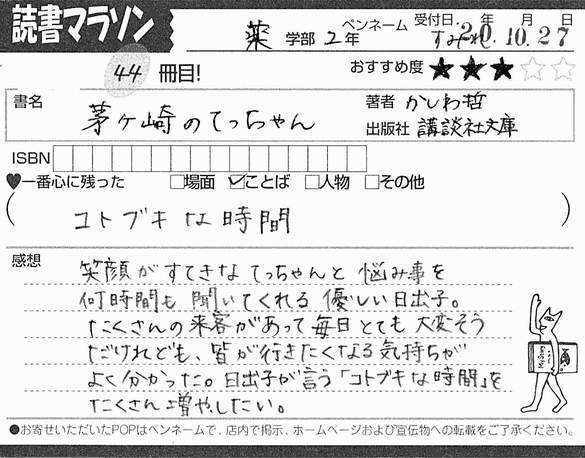 読書マラソン
薬 学部 2年
ペンネーム すみれ
受付日. 20年 10月 27日
44 冊目!
おすすめ度 ★★★☆☆
書名 茅ヶ崎のてっちゃん
著者 かしわ哲
出版社 講談社文庫
ISBN
♥一番心に残った □場面 ☑ことば □人物 □その他
(コトブキな時間)
感想
笑顔がすてきなてっちゃんと悩み事を
何時間も聞いてくれる優しい日出子。
たくさんの来客があって毎日とても大変そう
だけれども、皆が行きたくなる気持ちが
よく分かった。日出子が言う「コトブキな時間」を
たくさん増やしたい。
●お寄せいただいたPOPはペンネームで、店内で掲示、ホームページおよび宣伝物への転載をご了承ください。